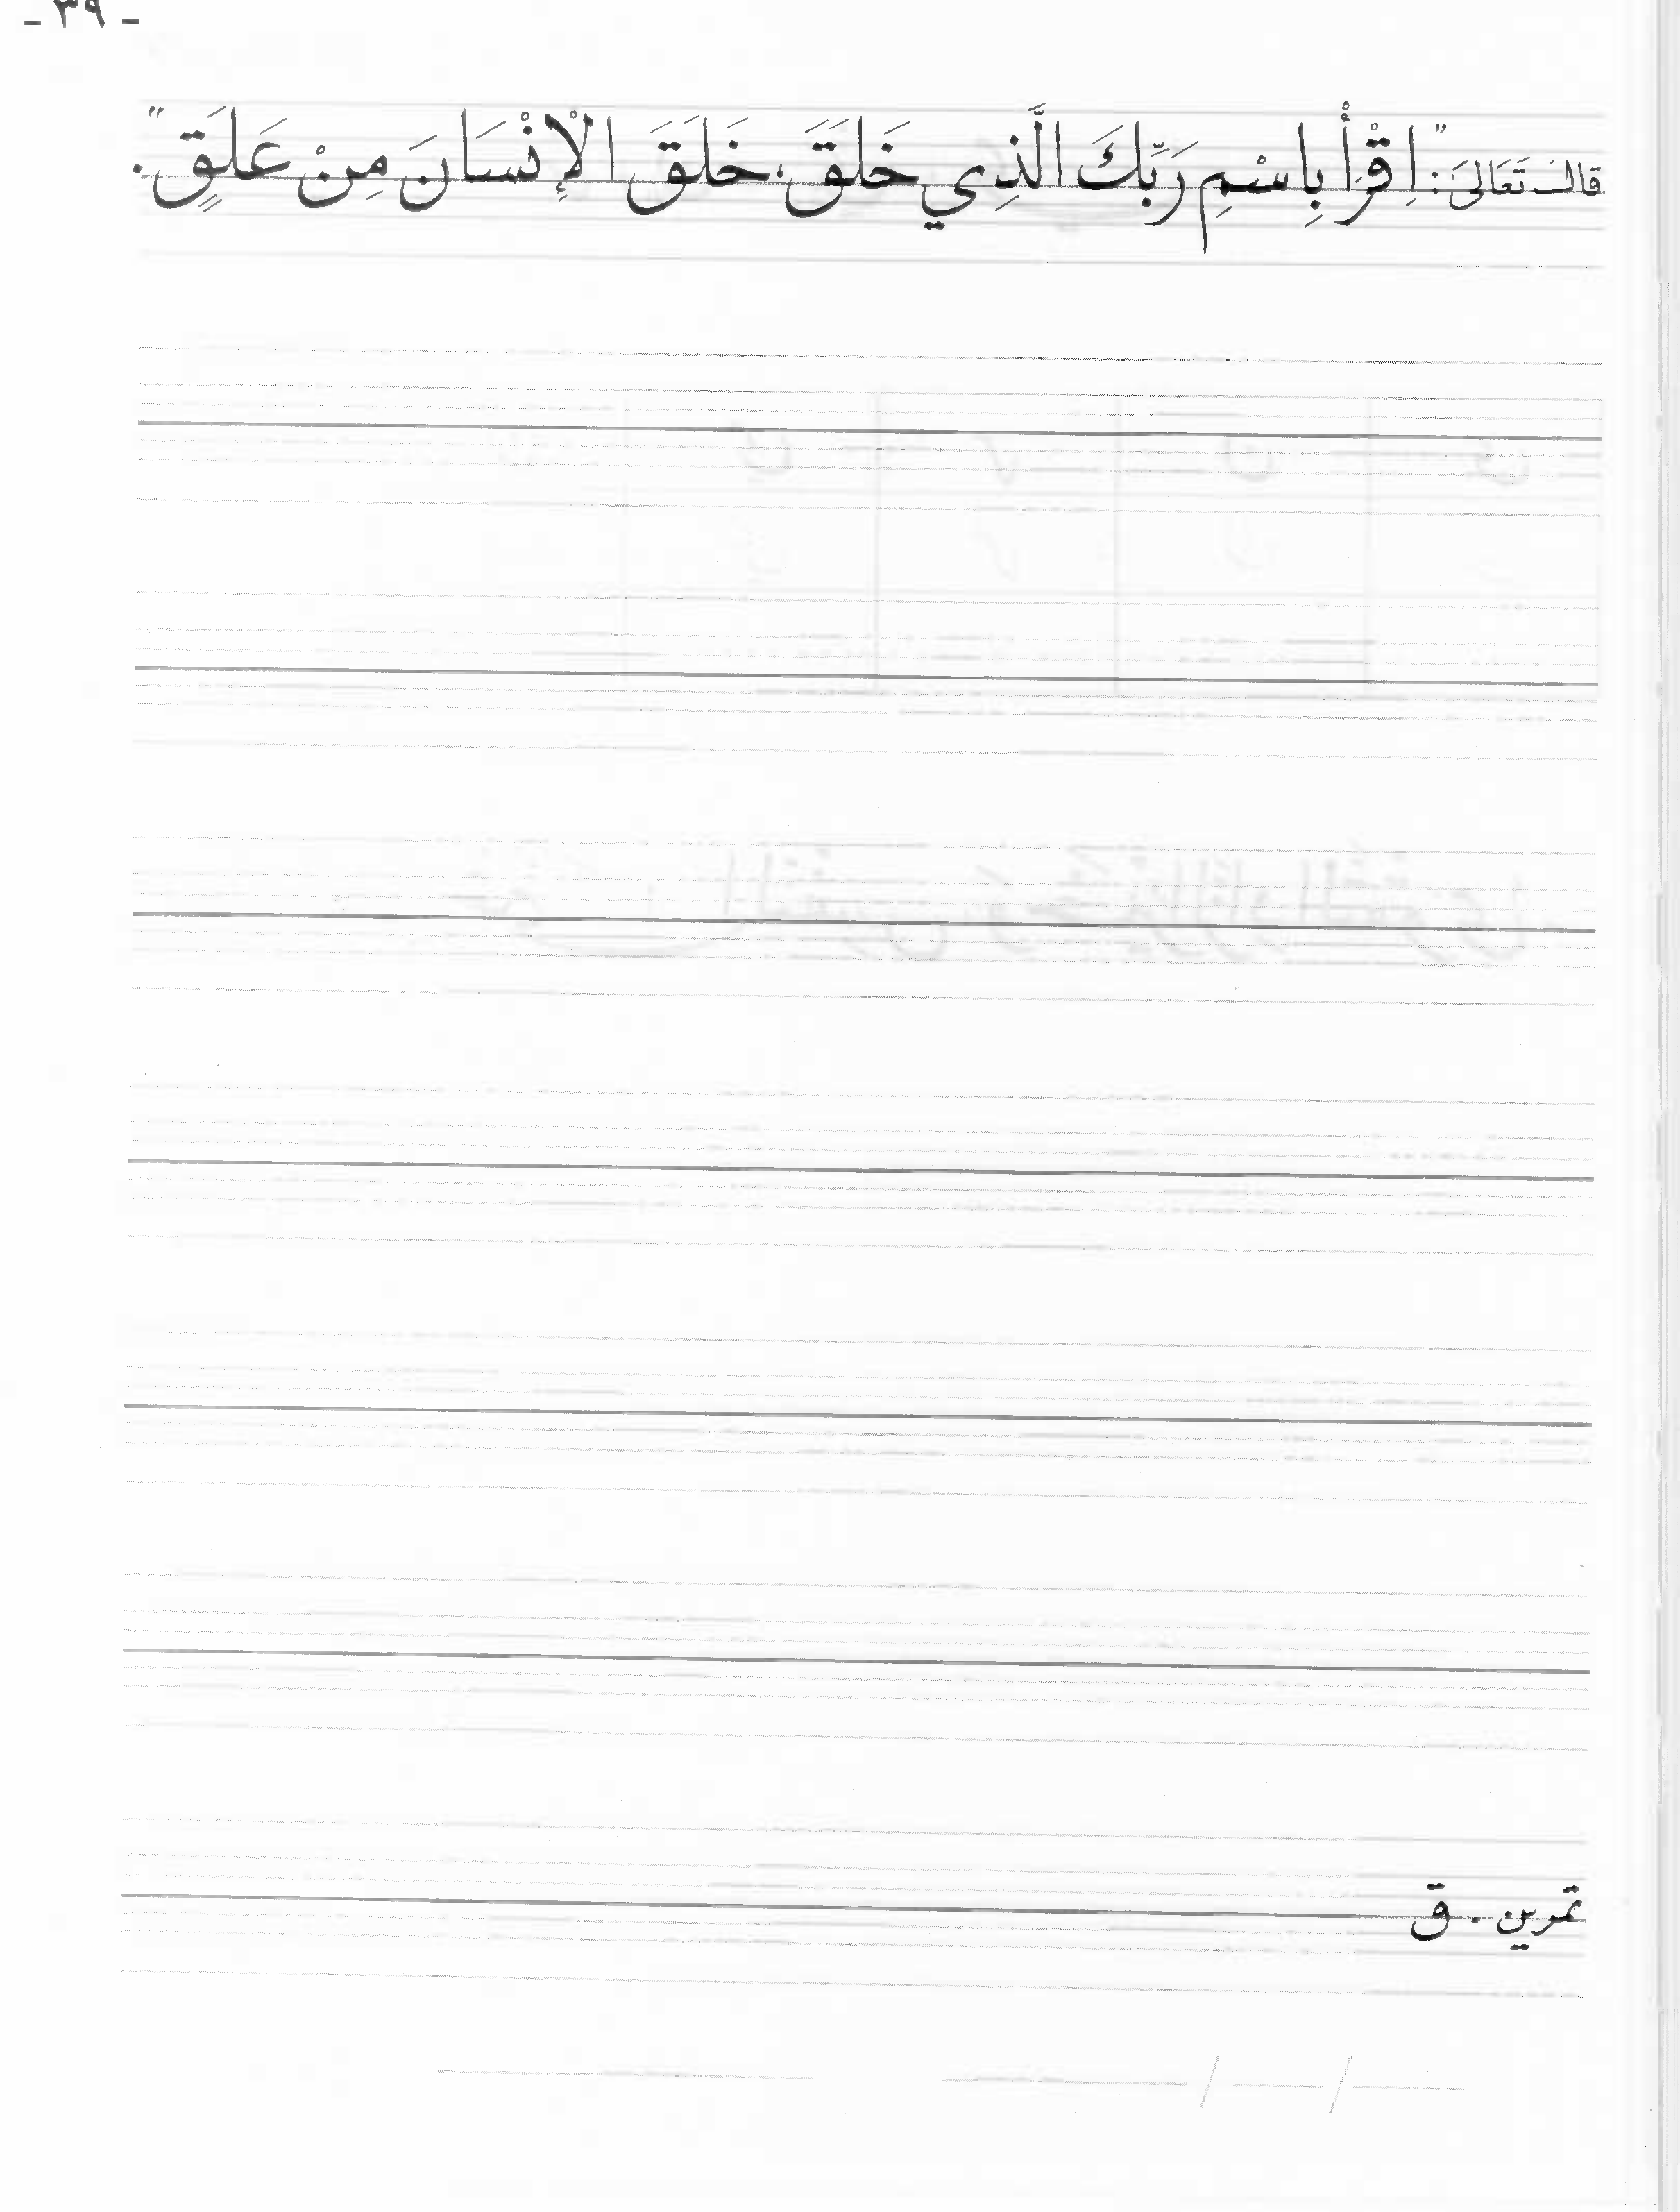 - ٣٩ -
قَالَ تَعَالَىٰ : " اِقْرَأْ بِاسْمِ رَبِّكَ الَّذِي خَلَقَ ، خَلَقَ الْإِنْسَانَ مِنْ عَلَقٍ " .
تمرين . ق